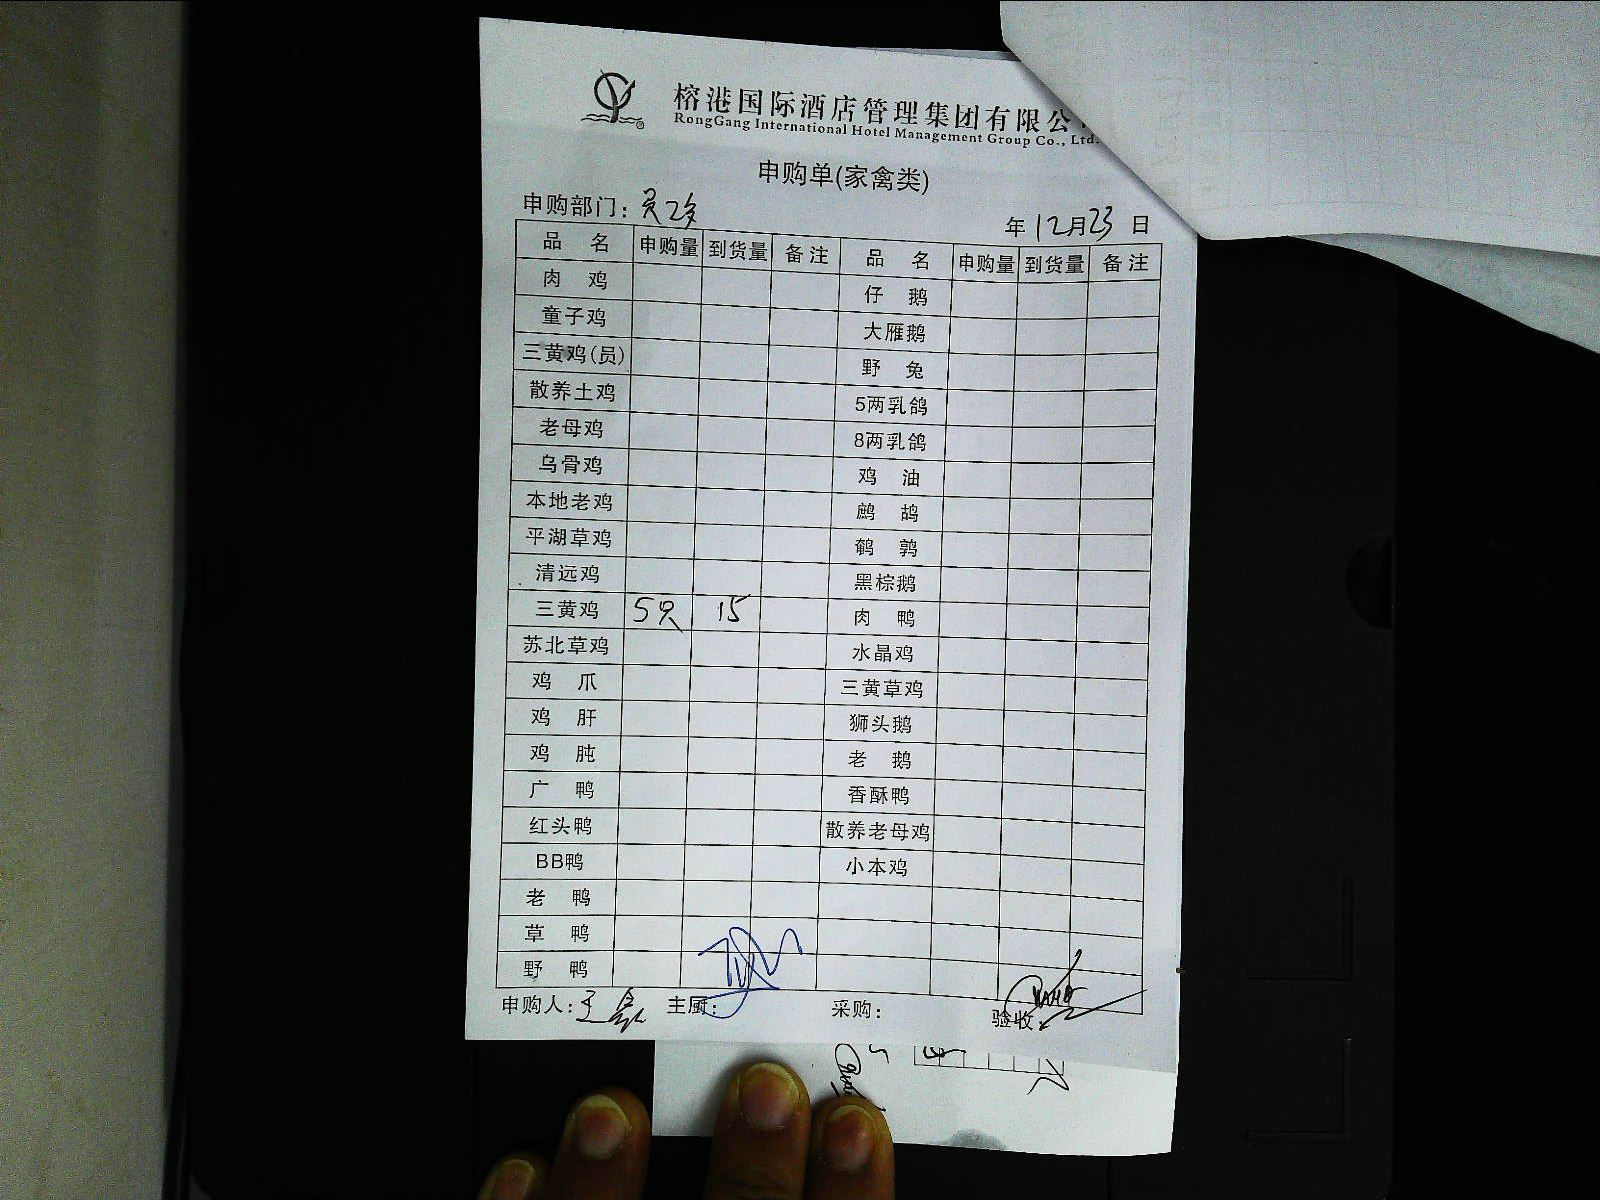 榕港国际酒店管理集团有限公
RongGang International Hotel Management Group Co., Ltd.
申购单(家禽类)
申购部门：
年12月23日
品 名 申购量 到货量 备注 品 名 申购量 到货量 备注
肉 鸡 仔 鹅
童子鸡 大雁鹅
三黄鸡(员) 野 兔
散养土鸡 5两乳鸽
老母鸡 8两乳鸽
乌骨鸡 鸡 油
本地老鸡 鹧 鸪
平湖草鸡 鹌 鹑
清远鸡 黑棕鹅
三黄鸡 5只 15 肉 鸭
苏北草鸡 水晶鸡
鸡 爪 三黄草鸡
鸡 肝 狮头鹅
鸡 肫 老 鹅
广 鸭 香酥鸭
红头鸭 散养老母鸡
BB鸭 小本鸡
老 鸭
草 鸭
野 鸭
申购人：王 主厨： 采购： 验收：